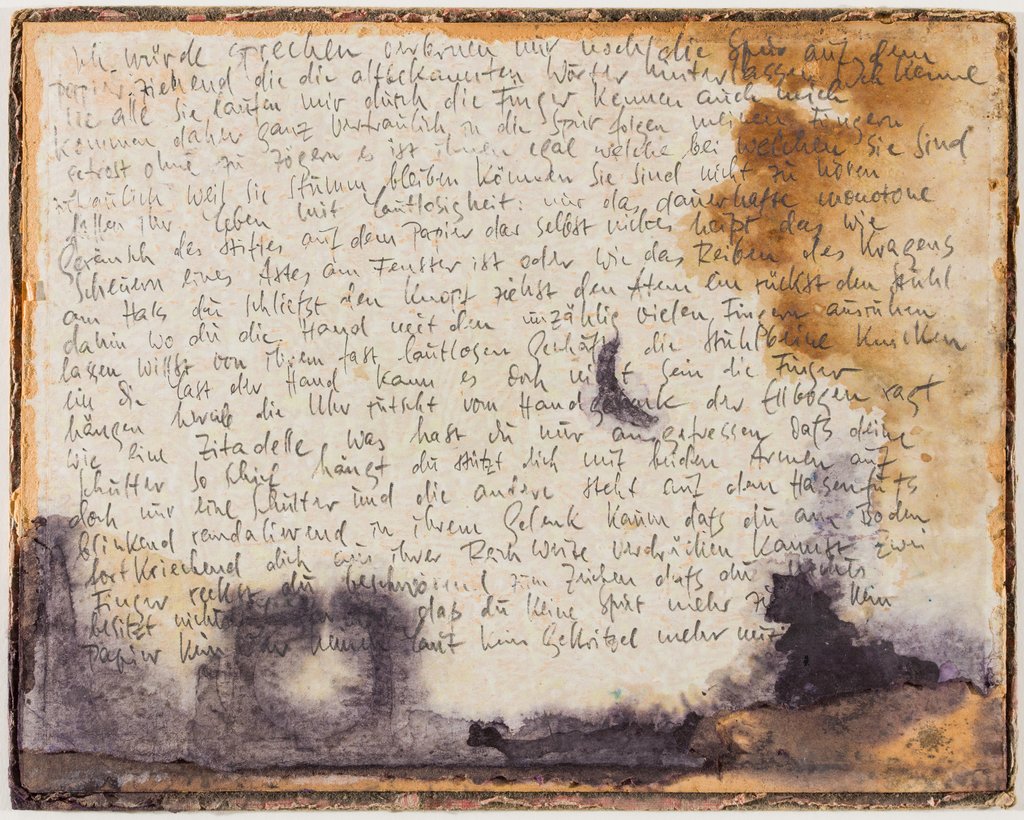 ich würde sprechen verlernen nur noch die Spur auf dem
papier ziehend die die altbekannten Wörter hinterlassen ich kenne
sie alle sie laufen mir durch die Finger kennen auch mich
kommen daher ganz vertraulich in die Spur folgen meinen Fingern
getrost ohne zu zögern es ist ihnen egal welche bei welchen sie sind
weil sie stumm bleiben können sie sind nicht zu hören
füllen ihr leben mit lautlosigkeit: nur das dauerhafte monotone
Geräusch des stiftes auf dem papier das selbst nichts heißt das wie
Scheuern eines Astes am Fenster ist oder wie das Reiben des Kragens
am Hals du schließst den Knopf ziehst den Atem ein rückst den stühl
dahin wo du die Hand mit den unzählig vielen Fingern ausruhen
lassen willst von ihrem fast lautlosen Geschäft die stühlbeine knicken
ein die last der Hand kann es doch nicht sein die Finger
hängen herab die Uhr rutscht vom Handgelenk der Ellbogen ragt
wie eine Zitadelle was hast du nur angefressen daß deine
schulter so schief hängt du stützt dich mit beiden Armen auf
doch nur eine schulter und die andere steht auf dem Hasenfuß
blinkend randalierend in ihrem Gelenk kaum daß du am Boden
fortkriechend dich ihrer Reichweite verdrücken kannst zwei
Finger reckst du beschwörend zum Zeichen daß du nichts
besitzt nichts daß du keine Spur mehr kein
papier kein laut kein Gekritzel mehr